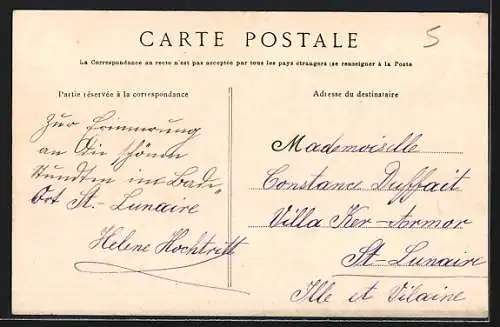 CARTE POSTALE
5
La Correspondance au recto n'est pas acceptée par tous les pays étrangers (se renseigner à la Poste
Partie réservée à la correspondance
Adresse du destinataire
Zur Erinnerung
an die schönen
Stunden im Bade-
Ort St.-Lunaire
Helene Hochtritt
Mademoiselle
Constance Duffait
Villa Ker-Armor
St-Lunaire
Ille et Vilaine